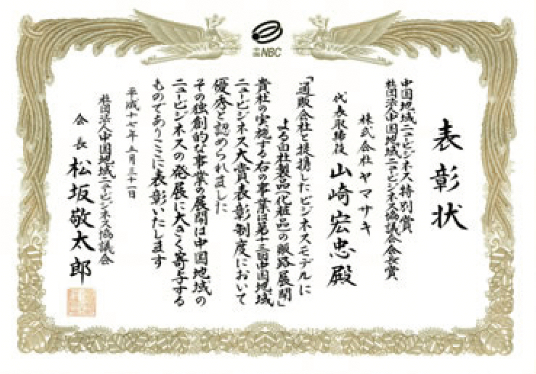 中国NBC
表彰状
中国地域ニュービジネス特別賞
社団法人中国地域ニュービジネス協議会会長賞
株式会社ヤマサキ
代表取締役 山崎宏忠殿
「通販会社と提携したビジネスモデルに
よる自社製品(化粧品)の販路展開」
貴社の実施する右の事業は第十三回中国地域
ニュービジネス大賞表彰制度において
優秀と認められました
その独創的な事業の展開は中国地域の
ニュービジネスの発展に大きく寄与する
ものでありここに表彰いたします
平成十七年五月三十一日
社団法人中国地域ニュービジネス協議会
会長 松坂敬太郎